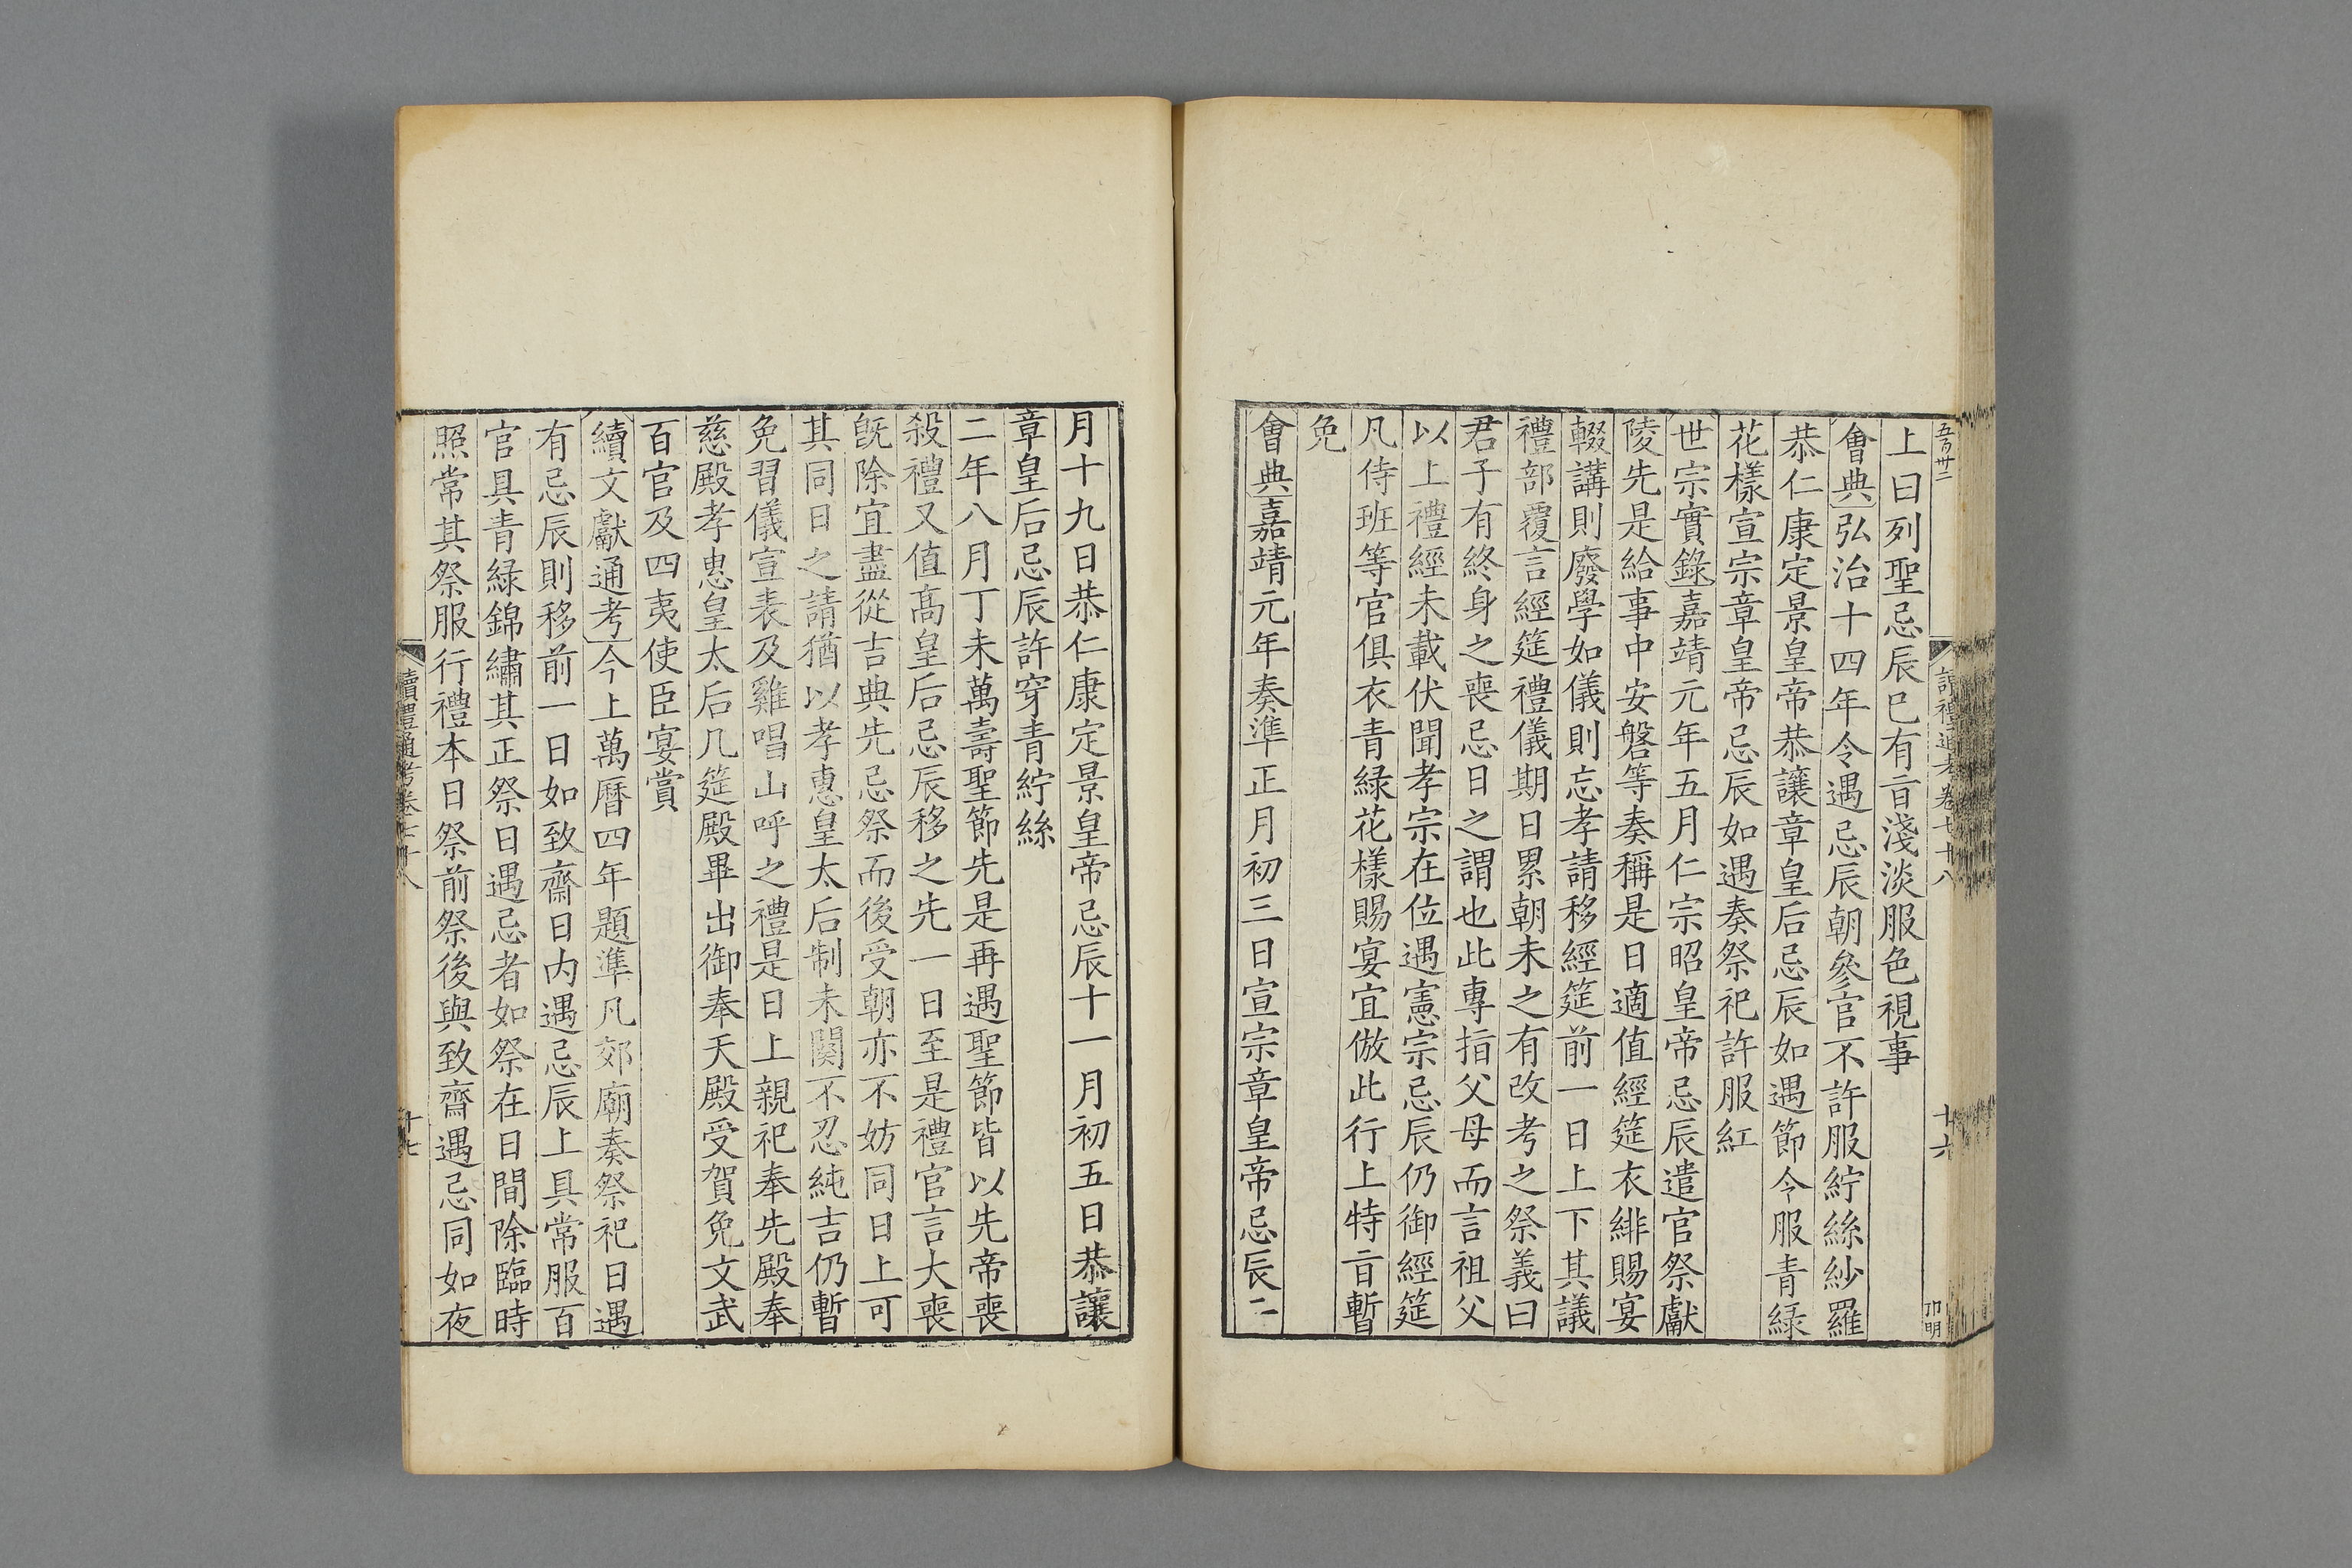 五百卅二
讀禮通考卷七十八
十六
上曰列聖忌辰已有㫖淺淡服色視事
會典弘治十四年令遇忌辰朝參官不許服紵絲紗羅
恭仁康定景皇帝恭讓章皇后忌辰如遇節令服青綠
花樣宣宗章皇帝忌辰如遇奏祭祀許服紅
世宗實錄嘉靖元年五月仁宗昭皇帝忌辰遣官祭獻
陵先是給事中安磐等奏稱是日適值經筵衣緋賜宴
輟講則廢學如儀則忘孝請移經筵前一日上下其議
禮部覆言經筵禮儀期日累朝未之有改考之祭義曰
君子有終身之喪忌日之謂也此專指父母而言祖父
以上禮經未載伏聞孝宗在位遇憲宗忌辰仍御經筵
凡侍班等官俱衣青綠花樣賜宴宜倣此行上特㫖暫
免
會典嘉靖元年奏準正月初三日宣宗章皇帝忌辰十二
月十九日恭仁康定景皇帝忌辰十一月初五日恭讓
章皇后忌辰許穿青紵絲
二年八月丁未萬壽聖節先是再遇聖節皆以先帝喪
殺禮又值髙皇后忌辰移之先一日至是禮官言大喪
旣除宜盡從吉典先忌祭而後受朝亦不妨同日上可
其同日之請猶以孝惠皇太后制未闋不忍純吉仍暫
免習儀宣表及雞唱山呼之禮是日上親祀奉先殿奉
慈殿孝惠皇太后几筵殿畢出御奉天殿受賀免文武
百官及四夷使臣宴賞
續文獻通考今上萬曆四年題準凡郊廟奏祭祀日遇
有忌辰則移前一日如致齋日內遇忌辰上具常服百
官具青綠錦繡其正祭日遇忌者如祭在日間除臨時
照常其祭服行禮本日祭前祭後與致齋遇忌同如夜
讀禮通考卷七十八
十七